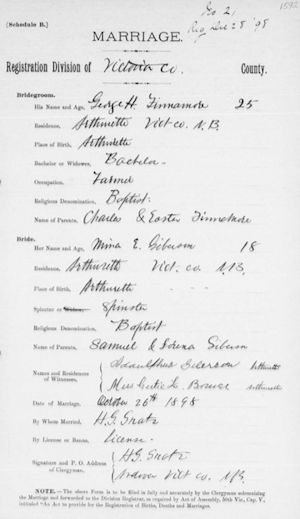 No 2,
1592
(Schedule B.)
Reg Dec 28 '98
MARRIAGE.
Registration Division of Victoria Co. County.
Bridegroom.
His Name and Age, George H. Finnamore 25
Residence, Arthurette Vict co. N.B.
Place of Birth, Arthurette
Bachelor or Widower, Bachelor
Occupation, Farmer
Religious Denomination, Baptist
Name of Parents, Charles & Easter Finnemore
Bride.
Her Name and Age, Mina E. Giberson 18
Residence, Arthurette Vict. co. N.B.
Place of Birth, Arthurette
Spinster or Widow, Spinster
Religious Denomination, Baptist
Name of Parents, Samuel & Giberson
Names and Residences of Witnesses,
Giberson Arthurette
Miss Arthurette
Date of Marriage, October 26th 1898
By Whom Married, H.G.
By License or Banns, License
Signature and P. O. Address of Clergyman,
H.G.
Andover Vict Co. N.B.
NOTE.—The above Form is to be filled in fully and accurately by the Clergyman solemnizing
the Marriage and forwarded to the Division Registrar, as required by Act of Assembly, 50th Vic., Cap. V,
intituled "An Act to provide for the Registration of Births, Deaths and Marriages.